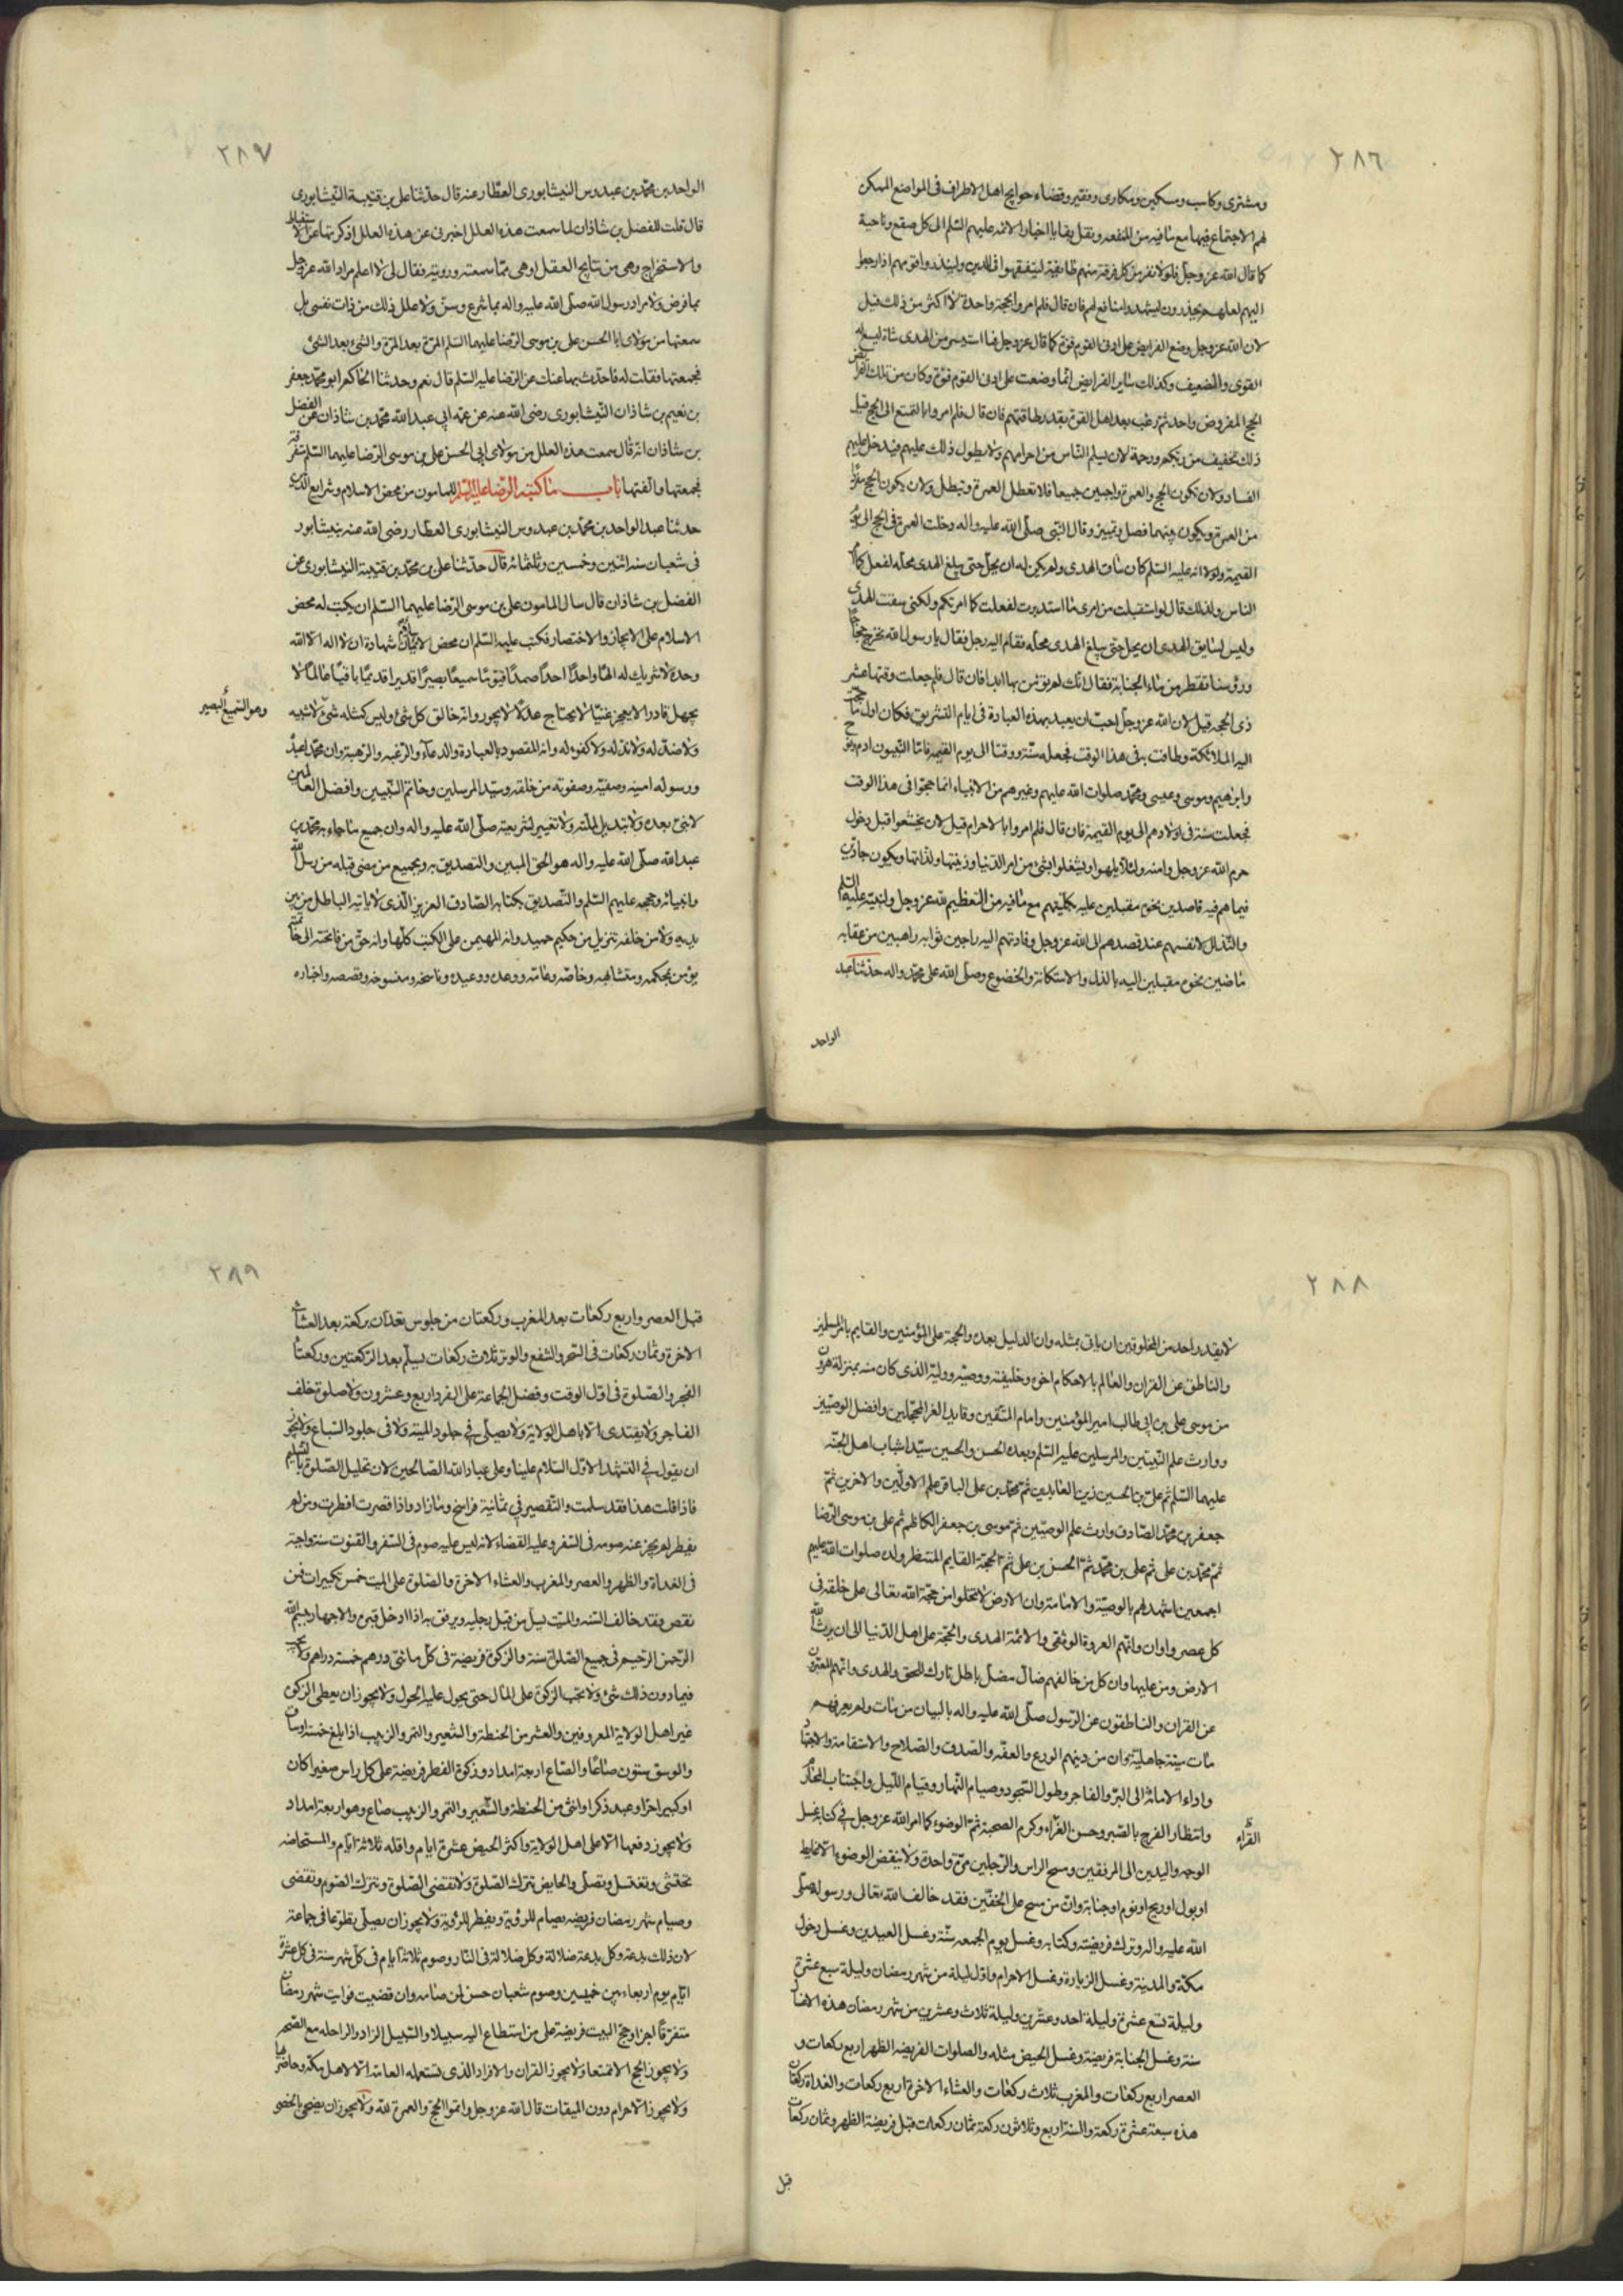 ٢٨٦
ومشترى وكاسب ومسكين ومكارى وفقير وقضاء حوايج اهل الاطراف فى المواضع الممكن
لهم الاجتماع فيها مع ما فيه من التفقه ونقل بقايا اخبار الائمه عليهم السّلم الى كل صقع وناحية
كما قال الله عز وجل فلولا نفر من كل فرقة منهم طائفة ليتفقهوا فى الدين ولينذروا قومهم اذا رجعوا
اليهم لعلهم يحذرون وليشهدوا منافع لهم فان قال فلم امروا بحجة واحدة لا اكثر من ذلك قيل
لان الله عز وجل وضع الفرايض على ادنى القوم قوة كما قال عز وجل فما استيسر من الهدى شاة ليسع له
القوى والضعيف وكذلك ساير الفرايض انما وضعت على ادنى القوم قوة وكان من تلك الفرايض
الحج المفروض واحد ثم رغب بعد اهل القوة بقدر طاقتهم فان قال فلم امروا بالتمتع الى الحج قيل
ذلك تخفيف من ربكم ورحمة لان يسلم النّاس من احرامهم ولا يطول ذلك عليهم فيدخل عليهم
الفساد ولان يكون الحج والعمرة واجبين جميعا فلا تعطل العمرة وتبطل ولان يكون الحج مفردا
من العمرة ويكون بينهما فصل وتمييز وقال النّبى صلّى الله عليه واله دخلت العمرة فى الحج الى يوم
القيمة ولولا انه عليه السّلم كان ساق الهدى ولم يكن له ان يحلّ حتى يبلغ الهدى محله لفعل كما امر
الناس ولذلك قال لو استقبلت من امرى ما استدبرت لفعلت كما امرتكم ولكنى سقت الهدى
وليس لسايق الهدى ان يحل حتى يبلغ الهدى محله فقام اليه رجل فقال يا رسول الله نخرج حجاجا
ورؤسنا تقطر من ماء الجنابة فقال انّك لن تؤمن بها ابدا فان قال فلم جعلت وقتها عشر
ذى الحجه قيل لان الله عز وجل احب ان يعبد بهذه العبادة فى ايام التشريق فكان اول ما حجت
اليه الملائكة وطافت به فى هذا الوقت فجعله سنّة ووقتا الى يوم القيمة فاما النبيون ادم ونوح
وابرهيم وموسى وعيسى ومحمّد صلوات الله عليهم وغيرهم من الانبياء انما حجوا فى هذا الوقت
فجعلت سنّة فى اولادهم الى يوم القيمة فان قال فلم امروا بالاحرام قيل لان يخشعوا قبل دخول
حرم الله عز وجل وامنه ولئلا يلهوا ويشتغلوا بشئ من امر الدّنيا وزينتها ولذاتها ويكون جادين
فيما هم فيه قاصدين نحوه مقبلين عليه بكلّيتهم مع ما فيه من التعظيم لله عز وجل ولنبيّه عليه السّلم
والتّذلل لانفسهم عند قصدهم الى الله عز وجل وفادتهم اليه راجين ثوابه راهبين من عقابه
ماضين نحوه مقبلين اليه بالذل والاستكانة والخضوع وصلّى الله على محمّد واله حدّثنا عبد
الواحد
٢٨٧
الواحد بن محمّد بن عبدوس النيشابورى العطار عنه قال حدّثنا على بن قتيبة النّيشابورى
قال قلت للفضل بن شاذان لما سمعت هذه العلل اخبرنى عن هذه العلل اذكرتها عن الاستنباط
والاستخراج وهى من نتايج العقل او هى ممّا سمعته ورويته فقال لى ما كنت لاعلم مراد الله عز وجل
بما فرض ولا مراد رسول الله صلّى الله عليه واله بما شرع وسنّ ولا علل ذلك من ذات نفسى بل
سمعتها من مولاى ابا الحسن على بن موسى الرّضا عليهما السّلم المرّة بعد المرّة والشئ بعد الشئ
فجمعتها فقلت له فاحدّث بها عنك عن الرّضا عليه السّلم قال نعم وحدثنا الحاكم ابو محمّد جعفر
بن نعيم بن شاذان النّيشابورى رضى الله عنه عن عمّه ابى عبد الله محمّد بن شاذان عن الفضل
بن شاذان انه قال سمعت هذه العلل من مولاى ابى الحسن على بن موسى الرّضا عليهما السّلم متفرقة
فجمعتها والفتها باب ما كتبه الرّضا عليه السّلم للمامون من محض الاسلام وشرايع الدّين
حدثنا عبد الواحد بن محمّد بن عبدوس النيشابورى العطار رضى الله عنه بنيشابور
فى شعبان سنه اثنين وخمسين وثلثمائه قال حدّثنا على بن محمّد بن قتيبة النيشابورى عن
الفضل بن شاذان قال سال المامون على بن موسى الرّضا عليهما السّلم ان يكتب له محض
الاسلام على الايجاز والاختصار فكتب عليه السّلم ان محض الاسلام شهادة ان لا اله الا الله
وحده لا شريك له الها واحدًا احدًا صمدًا قيّومًا سميعًا بصيرًا قديرا قديمًا باقيًا عالمًا لا
يجهل قادرا لا يعجز غنيّا لا يحتاج عدلًا لا يجور وانه خالق كل شئ وليس كمثله شئ لا شبيه
وهو السّميع البصير
ولا ضدّ له ولا ندّ له ولا كفوء له وانه المقصود بالعبادة والدعاء والرّغبه والرّهبة وان محمّدا عبده
ورسوله امينه وصفيّه وصفوته من خلقه وسيّد المرسلين وخاتم النّبيين وافضل العالمين
لا نبىّ بعده ولا تبديل لملّته ولا تغيير لشريعته صلّى الله عليه واله وان جميع ما جاء به محمّد بن
عبد الله صلّى الله عليه واله هو الحق المبين والتصديق به وبجميع من مضى قبله من رسل الله
وانبيائه وحججه عليهم السّلم والتّصديق بكتابه الصّادق العزيز الّذى لا ياتيه الباطل من بين
يديه ولا من خلفه تنزيل من حكيم حميد وانه المهيمن على الكتب كلّها وانه حق من فاتحته الى خاتمته
يؤمن بمحكمه ومتشابهه وخاصّه وعامّه ووعده ووعيده وناسخه ومنسوخه وقصصه واخباره
٢٨٨
لا يقدر احد من المخلوقين ان ياتى بمثله وان الدليل بعده والحجة على المؤمنين والقايم بامر المسلمين
والناطق عن القران والعالم بالاحكام اخوه وخليفته ووصيّه ووليّه الذى كان منه بمنزلة هرون
من موسى على بن ابى طالب امير المؤمنين وامام المتّقين وقايد الغر المحجّلين وافضل الوصيّين
ووارث علم النّبيين والمرسلين عليه السّلم وبعده الحسن والحسين سيّدا شباب اهل الجنّه
عليهما السّلم ثم على بن الحسين زين العابدين ثم محمّد بن على الباقر علم الاولين والاخرين ثم
جعفر بن محمّد الصّادق وارث علم الوصيّين ثم موسى بن جعفر الكاظم ثم على بن موسى الرّضا
ثم محمّد بن على ثم على بن محمّد ثم الحسن بن على ثم الحجة القايم المنتظر ولده صلوات الله عليهم
اجمعين اشهد لهم بالوصيّة والامامة وان الارض لا تخلوا من حجّة الله تعالى على خلقه فى
كل عصر واوان وانّهم العروة الوثقى والائمّة الهدى والحجّة على اهل الدّنيا الى ان يرث الله
الارض ومن عليها وان كل من خالفهم ضالّ مضلّ باطل تارك للحق والهدى وانهم المعبّرون
عن القران والناطقون عن الرّسول صلّى الله عليه واله بالبيان من مات ولم يعرفهم
مات ميتة جاهليّة وان من دينهم الورع والعفّه والصّدق والصّلاح والاستقامة والاجتهاد
واداء الامانة الى البرّ والفاجر وطول السّجود وصيام النّهار وقيام اللّيل واجتناب المحارم
وانتظار الفرج بالصّبر وحسن القراء وكرم الصحبة ثم الوضوء كما امر الله عز وجل فى كتابه غسل
القرّاء
الوجه واليدين الى المرفقين ومسح الراس والرّجلين مرّة واحدة ولا ينقض الوضوء الا غايط
او بول او ريح او نوم او جنابة وانّ من مسح على الخفّين فقد خالف الله تعالى ورسوله صلّى
الله عليه واله وترك فريضته وكتابه وغسل يوم الجمعه سنّة وغسل العيدين وغسل دخول
مكّة والمدينة وغسل الزيارة وغسل الاحرام واوّل ليلة من شهر رمضان وليلة سبع عشرة
وليلة تسع عشرة وليلة احد وعشرين وليلة ثلاث وعشرين من شهر رمضان هذه الاغسال
سنة وغسل الجنابة فريضة وغسل الحيض مثله والصلوات الفريضه الظهر اربع ركعات و
العصر اربع ركعات والمغرب ثلاث ركعات والعشاء الاخرة اربع ركعات والغداة ركعتان
هذه سبعة عشرة ركعة والسنة اربع وثلاثون ركعة ثمان ركعات قبل فريضة الظهر وثمان ركعات
قبل
٢٨٩
قبل العصر واربع ركعات بعد المغرب وركعتان من جلوس تعدّان بركعة بعد العشاء
الاخرة وثمان ركعات فى السّحر والشفع والوتر ثلاث ركعات يسلّم بعد الرّكعتين وركعتا
الفجر والصّلوة فى اوّل الوقت وفضل الجماعة على الفرد اربع وعشرون ولا صلوة خلف
الفاجر ولا يقتدى الا باهل الولاية ولا يصلّى فى جلود الميتة ولا فى جلود السّباع ولا يجوز
ان يقول فى التشهد الاوّل السّلام علينا وعلى عباد الله الصّالحين لان تحليل الصّلوة التسليم
فاذا قلت هذا فقد سلمت والتّقصير فى ثمانية فراسخ وما زاد واذا قصرت افطرت ومن لم
يفطر لم يجز عنه صومه فى السّفر وعليه القضاء لانه ليس عليه صوم فى السّفر والقنوت سنة واجبة
فى الغداة والظهر والعصر والمغرب والعشاء الاخرة والصّلوة على الميّت خمس تكبيرات فمن
نقص فقد خالف السّنه والميّت يسل من قبل رجليه ويرفق به اذا ادخل قبره والاجهار ببسم الله
الرّحمن الرّحيم فى جميع الصّلوة سنة والزكوة فريضة فى كلّ مائتى درهم خمسة دراهم ولا يجب
فيما دون ذلك شئ ولا تجب الزكوة على المال حتى يحول عليه الحول ولا يجوز ان يعطى الزكوة
غير اهل الولاية المعروفين والعشر من الحنطة والشّعير والتمر والزبيب اذا بلغ خمسة اوساق
والوسق ستون صاعًا والصّاع اربعة امداد وزكوة الفطر فريضة على كل راس صغيرا كان
او كبير احرّ او عبد ذكر او انثى من الحنطة والشّعير والتمر والزبيب صاع وهو اربعة امداد
ولا يجوز دفعها الّا على اهل الولاية واكثر الحيض عشرة ايام واقله ثلاثة ايّام والمستحاضه
تحتشى وتغتسل وتصلّى والحايض تترك الصّلوة ولا تقضى الصّلوة وتترك الصّوم وتقضى
وصيام شهر رمضان فريضه يصام للرؤية ويفطر للرّؤية ولا يجوز ان يصلّى تطوّعا فى جماعة
لان ذلك بدعة وكل بدعة ضلالة وكل ضلالة فى النّار وصوم ثلاثة ايام فى كلّ شهر سنة فى كل عشرة
ايّام يوم اربعاء بين خميسين وصوم شعبان حسن لمن صامه وان قضيت فوايت شهر رمضان
متفرّقًا اجزا وحجّ البيت فريضة على من استطاع اليه سبيلا والسّبيل الزاد والراحله مع الصّحه
ولا يجوز الحج الا تمتعا ولا يجوز القران والافراد الذى تستعمله العامّه الّا لاهل مكّه وحاضريها
ولا يجوز الاحرام دون الميقات قال الله عز وجل واتمّوا الحجّ والعمرة لله ولا يجوز ان يضحى بالخصى